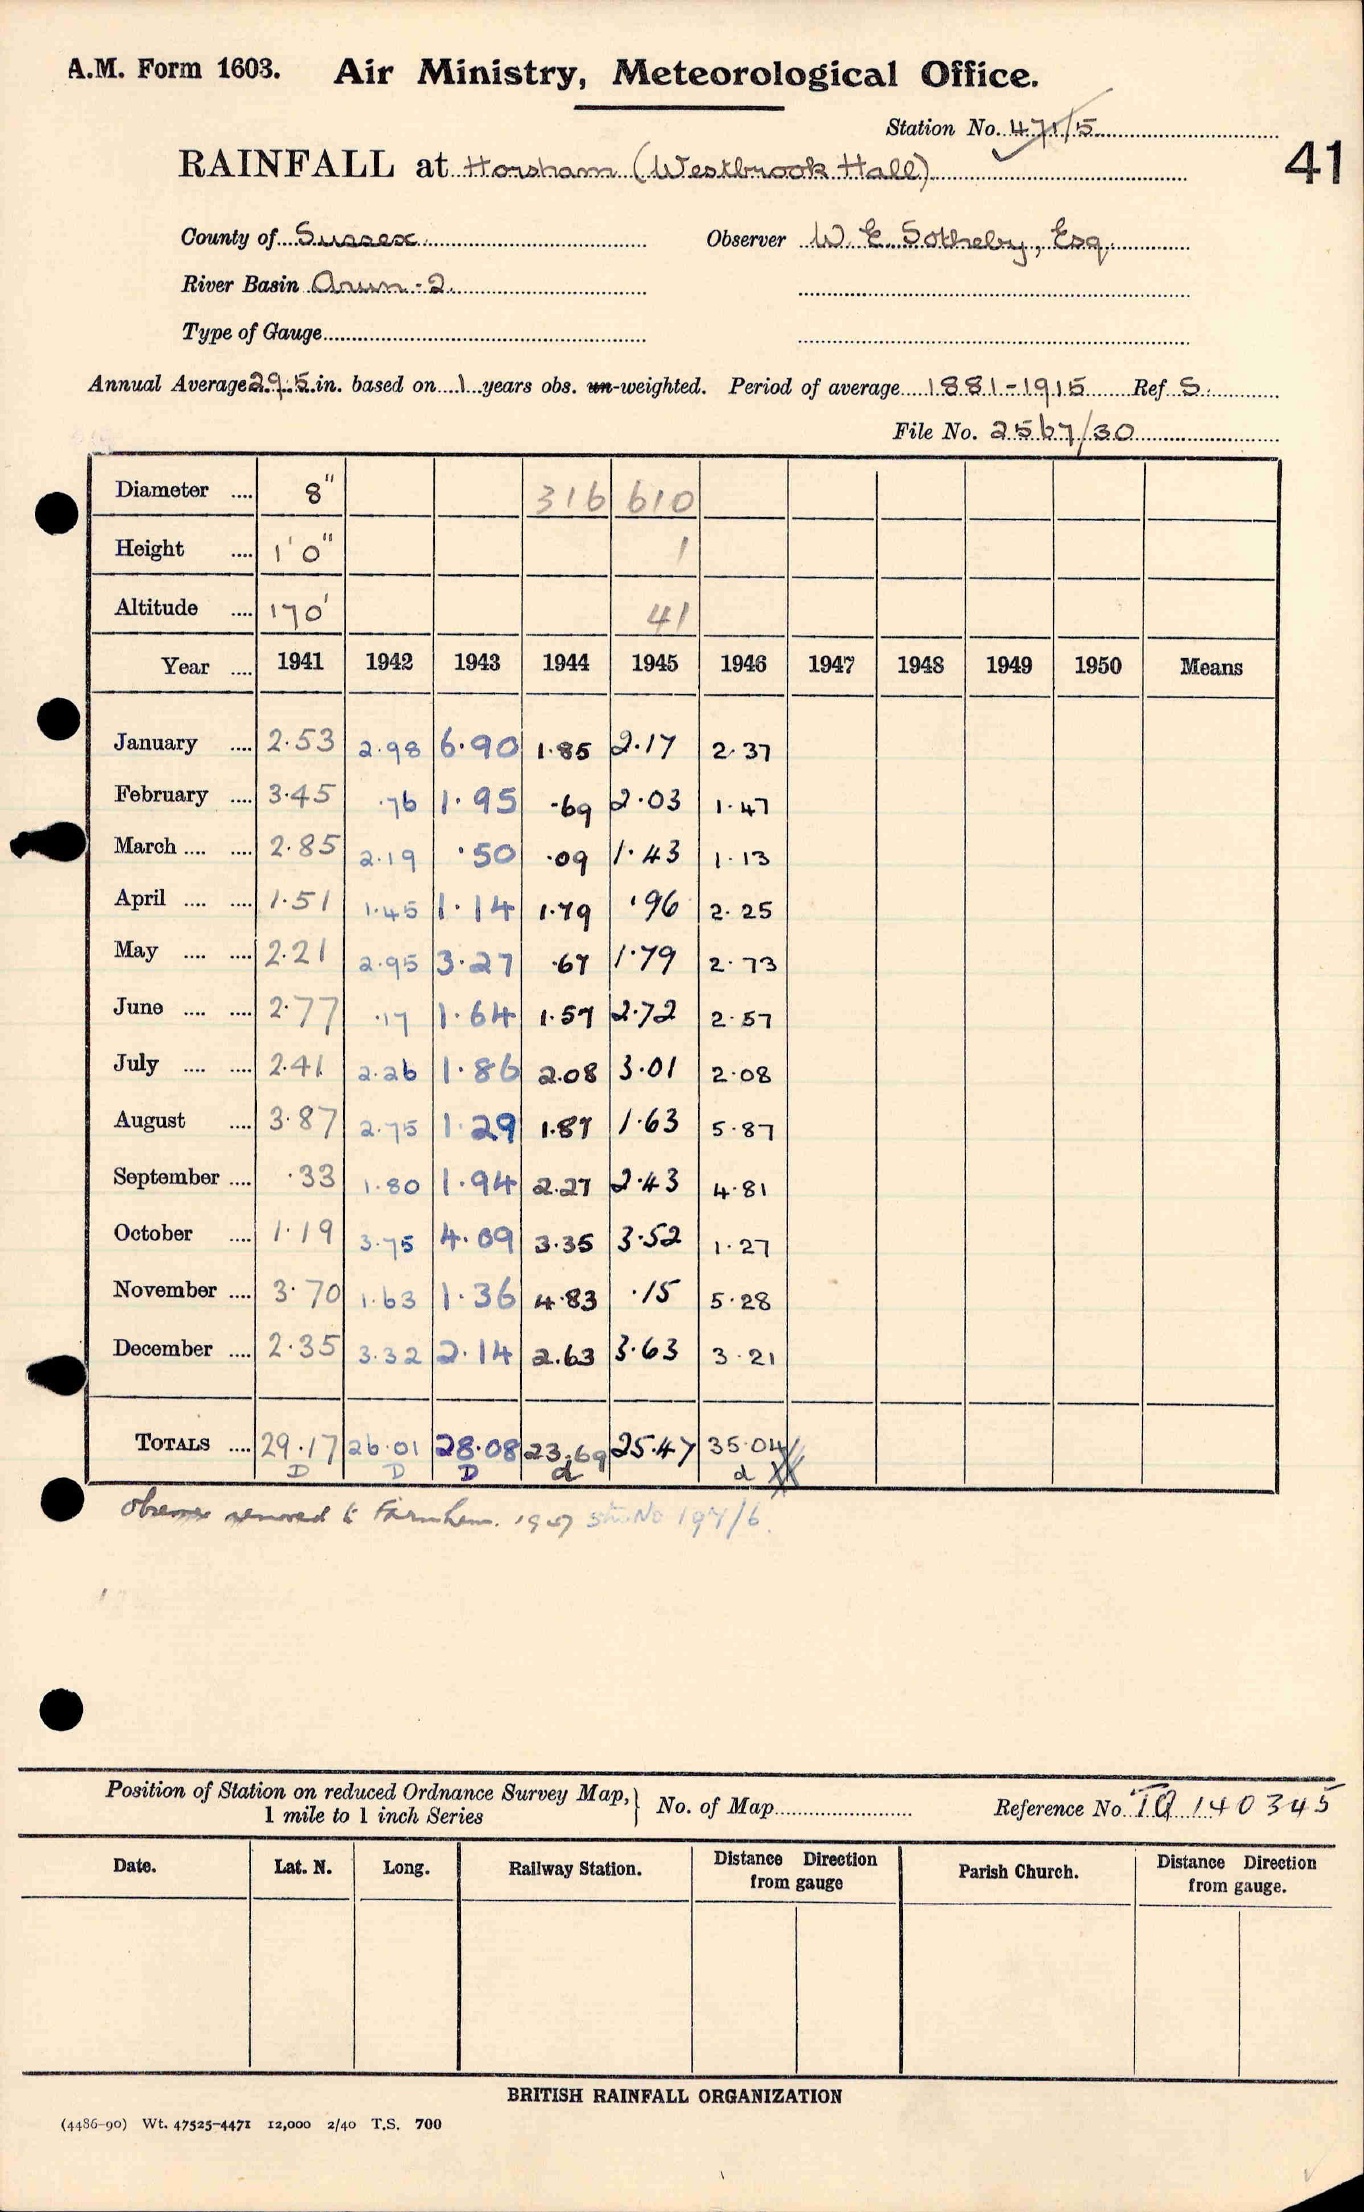 A.M. Form 1603. Air Ministry, Meteorological Office.
Station No. 471/5
41
RAINFALL at Horsham (Westbrook Hall)
County of Sussex Observer W. E. Sotheby, Esq.
River Basin Arun - 2
Type of Gauge
Annual Average 29.5 in. based on 1 years obs. un-weighted. Period of average 1881-1915 Ref S.
File No. 2567/30
Diameter .... 8" 316 610
Height .... 1' 0" 1
Altitude .... 170' 41
Year .... 1941 1942 1943 1944 1945 1946 1947 1948 1949 1950 Means
January .... 2.53 2.98 6.90 1.85 2.17 2.37
February .... 3.45 .76 1.95 .69 2.03 1.47
March .... .... 2.85 2.19 .50 .09 1.43 1.13
April .... .... 1.51 1.45 1.14 1.79 .96 2.25
May .... .... 2.21 2.95 3.27 .67 1.79 2.73
June .... .... 2.77 .17 1.64 1.57 2.72 2.57
July .... .... 2.41 2.26 1.86 2.08 3.01 2.08
August .... 3.87 2.75 1.29 1.87 1.63 5.87
September .... .33 1.80 1.94 2.27 2.43 4.81
October .... 1.19 3.75 4.09 3.35 3.52 1.27
November .... 3.70 1.63 1.36 4.83 .15 5.28
December .... 2.35 3.32 2.14 2.63 3.63 3.21
TOTALS .... 29.17 26.01 28.08 23.69 25.47 35.04
D D D d d
Observer removed to Farnham. 1947 stn No 197/6.
Position of Station on reduced Ordnance Survey Map, 1 mile to 1 inch Series } No. of Map Reference No. TQ 140345
Date. Lat. N. Long. Railway Station. Distance Direction from gauge Parish Church. Distance Direction from gauge.
BRITISH RAINFALL ORGANIZATION
(4486-90) Wt. 47525-4471 12,000 2/40 T.S. 700